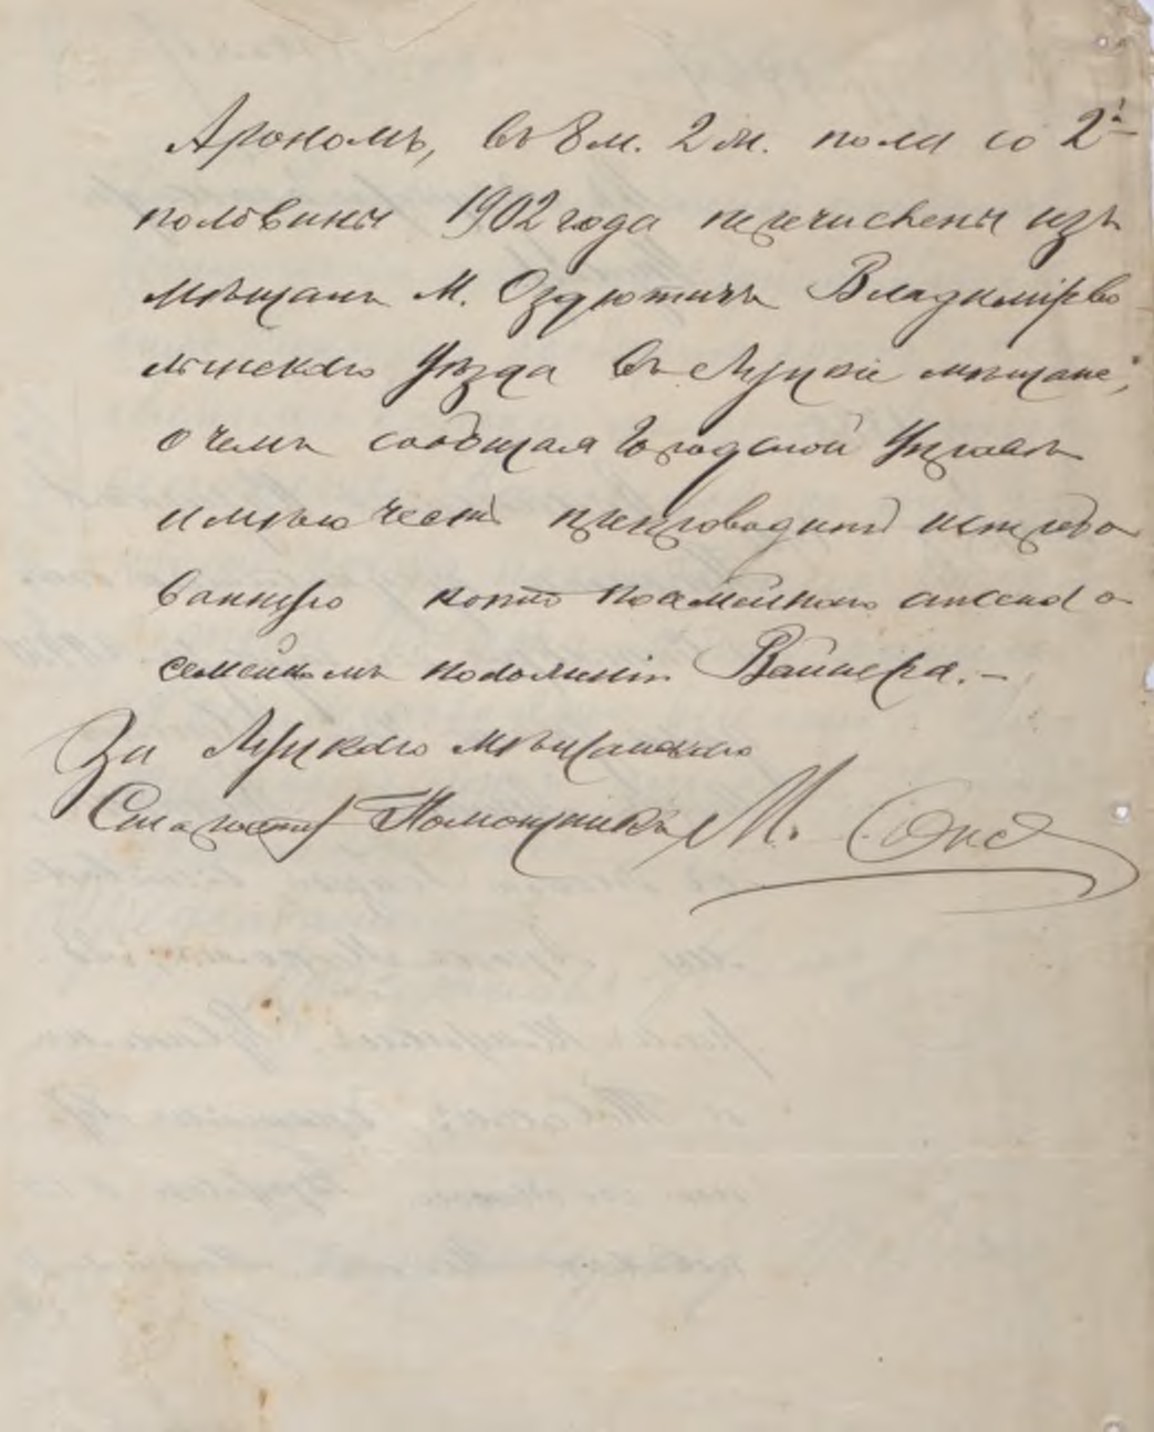 Арономъ, въ 8 м. 2 м. пола со 2й
половины 1902 года перечислены изъ
мѣщанъ м. Оздютичъ Владимірво
лынскаго уѣзда въ Луцкіе мѣщане,
о чемъ сообщая Городской Управѣ
имѣю честь препроводить истребо
ванную копію посемейнаго списка о
семейномъ положеніи Вайнера. —
За Луцкаго мѣщанскаго
Старосту Помощникъ М.